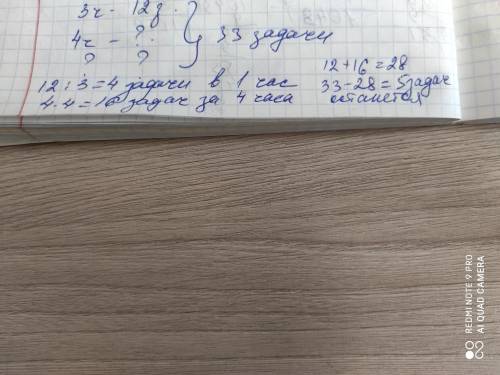 3ч - 12з.
4ч - ? } 33 задачи
? ?
12 : 3 = 4 задачи в 1 час
4 · 4 = 16 задач за 4 часа
12 + 16 = 28
33 - 28 = 5 задач
останется
REDMI NOTE 9 PRO
AI QUAD CAMERA